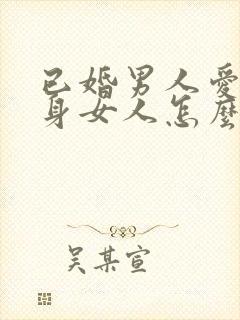 已婚男人愛
身女人怎麼
吳某宣